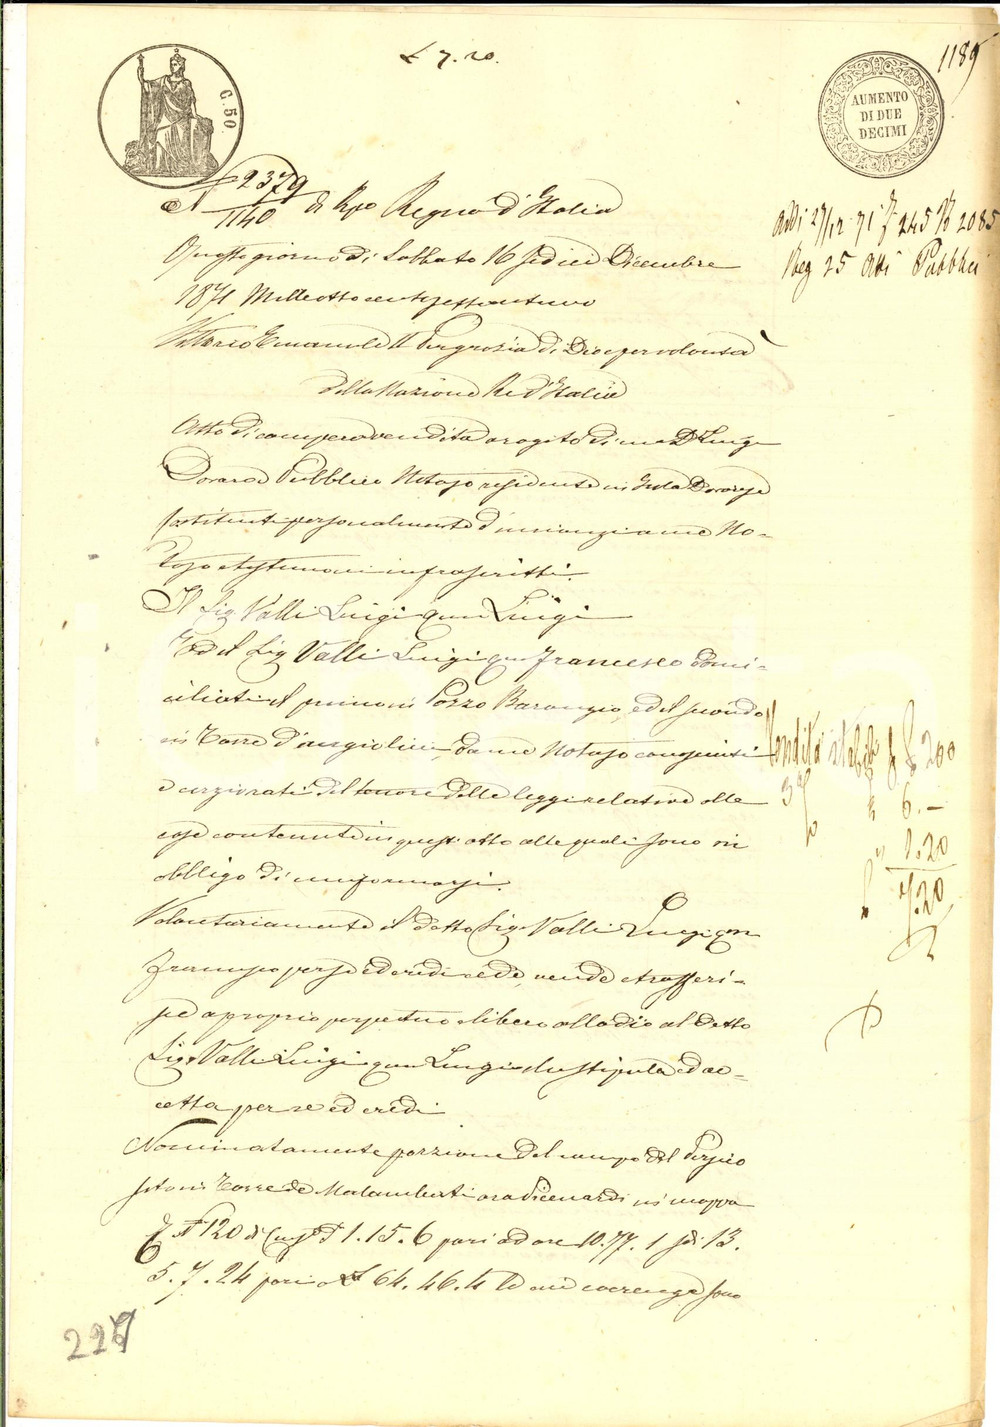 £ 7.20.
1189
C. 50
AUMENTO
DI DUE
DECIMI
N° 2379
1140 di Rep° Regno d'Italia
Addi 27/12 71 f 245 N 2085
Reg 25 Atti Pubblici
Questo giorno di Sabbato 16 sedici Dicembre
1871 Milleottocentosettantuno
Vittorio Emanuele II per grazia di Dio e per volontà
della Nazione Re d'Italia
Atto di compera vendita a rogito di me Dr Luigi
Pubblico Notajo residente in Isola Dovarese
Costituiti personalmente d'innanzi a me No-
tajo e testimoni infrascritti.
Il Sig. Valli Luigi qm Luigi
ed il Sig Valli Luigi qm Francesco domi-
ciliati il primo in Pozzo Baronzio, ed il secondo
in Torre d'Angiolini, da me Notajo conosciuti
e cerziorati del tenore delle leggi relative alle
cose contenute in quest'atto alle quali sono in
obbligo di uniformarsi.
Vendita stabili £ 200
3
6. —
1.20
7.20
Volontariamente il detto Sig. Valli Luigi qm
Francesco per se ed eredi cede, vende e trasferi-
sce a proprio perpetuo e libero allodio al detto
Sig. Valli Luigi qm Luigi che stipula ed ac-
cetta per se ed eredi
Nominatamente porzione del campo del Persico
sito in Torre de Malamberti ora Picenardi in mappa
N° 120 di Cens° P 1. 15. 6 pari ad are 10. 77. 1 sdi 13.
5. 7. 24 pari a £ 64. 46. 4 le cui coerenze sono
227